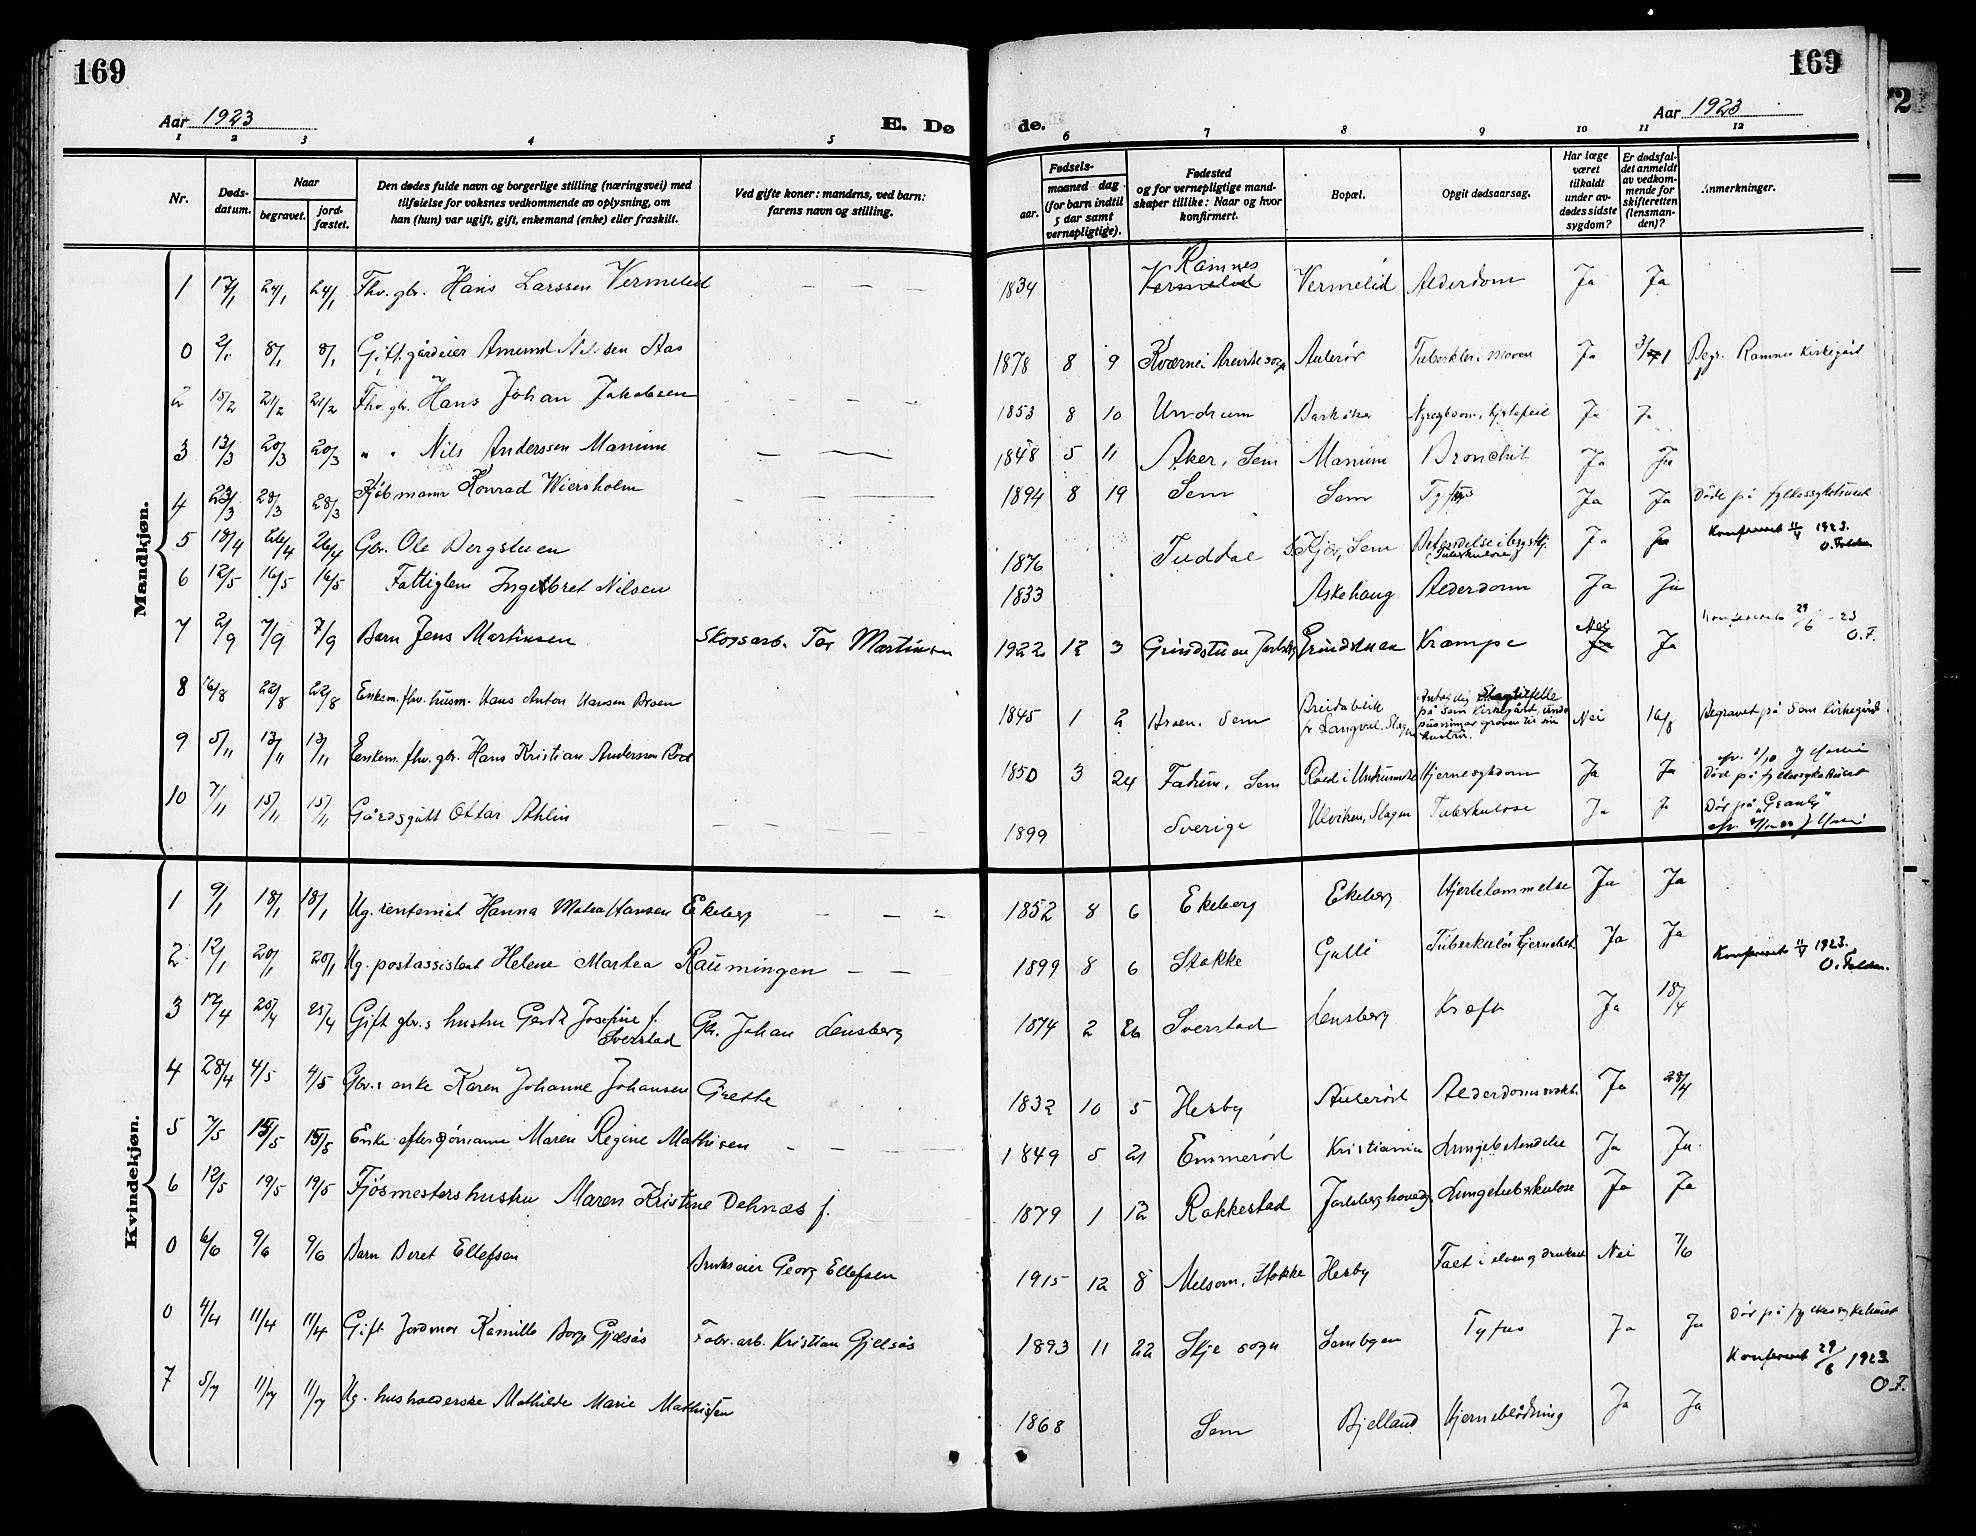 169
169
Aar 1923
E. Dø
de.
Aar 1923
1 2 3 4 5
6 7 8 9 10 11 12
Nr.
Døds-
datum.
Naar
begravet.
jord-
fæstet.
Den dødes fulde navn og borgerlige stilling (næringsvei) med
tilføielse for voksnes vedkommende av oplysning, om
han (hun) var ugift, gift, enkemand (enke) eller fraskilt.
Ved gifte koner: mandens, ved barn:
farens navn og stilling.
Fødsels-
aar.
maaned dag
(for barn indtil
5 aar samt
vernepligtige).
Fødested
og for vernepligtige mand-
skaper tillike: Naar og hvor
konfirmert.
Bopæl.
Opgit dødsaarsag.
Har læge
været
tilkaldt
under av-
dødes sidste
sygdom?
Er dødsfal-
det anmeldt
av vedkom-
mende for
skifteretten
(lensman-
den)?
Anmerkninger.
Mandkjøn.
1 17/1 24/1 24/1 Fhv. gbr. Hans Larssen Vermelid — — — 1834 Ramnes Vermelid Vermelid Alderdom Ja Ja
0 2/1 8/1 8/1 Gift gårdeier Amund Nilsen Aas 1878 8 9 Kværne Aulerød Ja Begr. Ramnes kirkegård
2 15/2 21/2 21/2 Fhv. gbr. Hans Johan Jakobsen 1853 8 10 Undrum Barkåker Ja Ja
3 13/3 20/3 20/3 " " Nils Anderssen Manum 1848 5 11 Aker, Sem Manum Bronchit Ja Ja
4 23/3 28/3 28/3 Kjøbmann Konrad Wiersholm 1894 8 19 Sem Sem Tyfus Ja Ja Døde på fylkessykehuset
5 18/4 26/4 26/4 Gbr. Ole Bergstuen 1876 Tuddal Kjær, Sem (Tuberkulose) Ja Ja Konfereret 11/4 1923.
O. Folden
6 12/5 16/5 16/5 Fattiglem Ingebret Nilsen 1833 Askehaug Alderdom Ja Ja
7 2/9 7/9 7/9 Barn Jens Martinsen Skogsarb. Tor Martinsen 1922 12 3 Grindstuen Jarlsberg Grindstuen Krampe Nei Ja Konfereret 29/6 - 23
O. F.
8 16/8 22/8 22/8 Enkem. fhv. husm. Hans Anton Hansen Broen 1845 1 2 Sem Nei 16/8 Begravet på Sem kirkegård
9 5/11 13/11 13/11 Enkem. fhv. gbr. Hans Kristian Anderssen Røed 1850 3 24 Fadum, Sem Røed i Undrumsdal Hjernesykdom Ja Ja Død på fylkessykehuset
10 7/11 15/11 15/11 Gårdsgutt Ottar Ahlin 1899 Sverige Ulviken, Slagen Tuberkulose Ja Ja Dør på "Granly"
Kvindekjøn.
1 9/1 18/1 18/1 Ug. rentenist Hanna Matea Hansen Ekeberg 1852 8 6 Ekeberg Ekeberg Hjertelammelse Ja Ja
2 12/1 20/1 20/1 Ug. postassistent Helene Martea Raumingen 1899 8 6 Stokke Gulli Tuberkuløs hjernebet. Ja Ja Konfereret 11/4 1923.
O. Folden.
3 17/4 25/4 25/4 Gift gbr.s hustru Gerda Josefine f.
Sverstad Gbr. Johan Lensberg 1874 2 26 Sverstad Lensberg Kræft Ja 18/4
4 28/4 4/5 4/5 Gbr.s enke Karen Johanne Johansen Grette 1832 10 5 Hesby Aulerød Alderdomssvakh. Ja 28/4
5 7/5 15/5 15/5 Enke efter sjømann Maren Regine Mathisen 1849 5 21 Emmerød Kristiania Lungebetendelse Ja Ja.
6 12/5 19/5 19/5 Fjøsmesters hustru Maren Kristine Dehnæs f. 1879 1 12 Rakkestad Jarlsberg hovedg. Lungetuberkulose Ja Ja
0 6/6 9/6 9/6 Barn Beret Ellefsen Brukseier Georg Ellefsen 1915 12 8 Melsom, Stokke Hesby Falt i elven og druknet Nei 7/6
0 4/4 11/4 11/4 Gift Jordmor Kamilla Borge Gjelsås Fabr. arb. Kristian Gjelsås 1893 11 22 Skje sogn Sembyen Tyfus Ja Ja Dør på fylkessykehuset
Konfereret 29/6 1923
O. F.
7 5/7 11/7 11/7 Ug. husholderske Mathilde Marie Mathisen 1868 Sem Bjelland Hjerneblødning Ja Ja